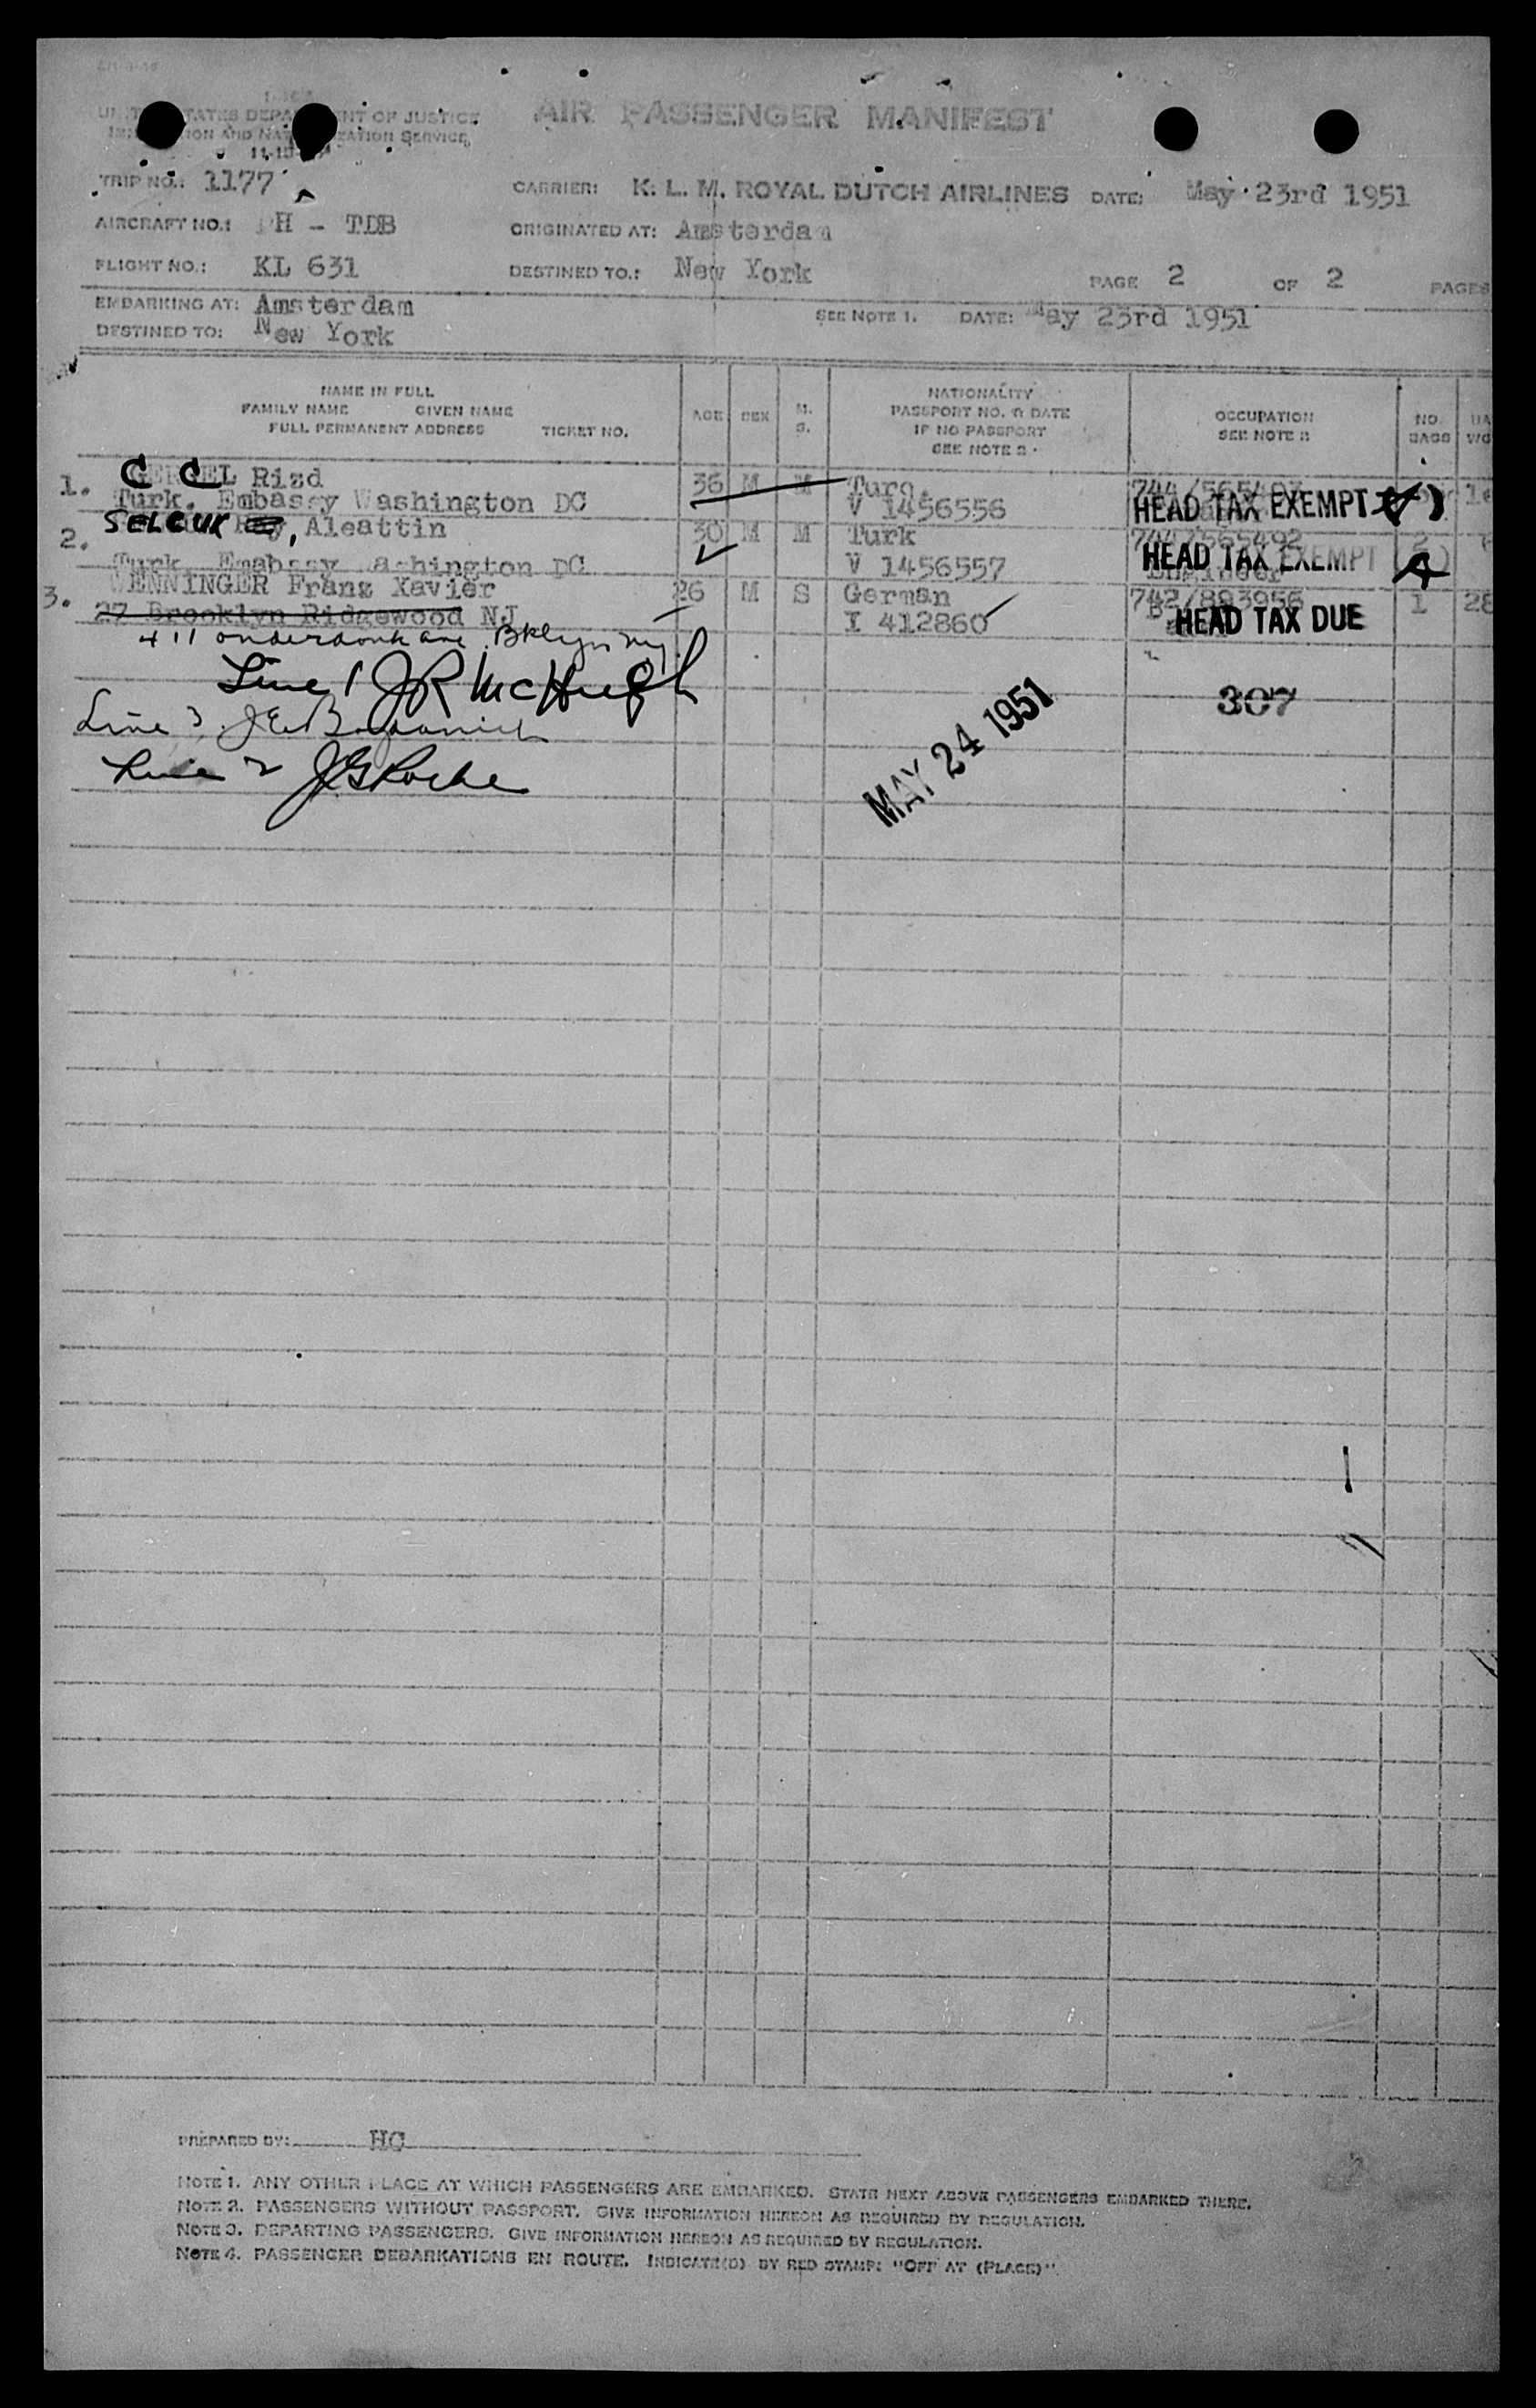 UNITED STATES DEPARTMENT OF JUSTICE
IMMIGRATION AND NATURALIZATION SERVICE
AIR PASSENGER MANIFEST
TRIP NO.: 1177
CARRIER: K. L. M. ROYAL DUTCH AIRLINES DATE: May 23rd 1951
AIRCRAFT NO.: PH - TDB ORIGINATED AT: Amsterdam
FLIGHT NO.: KL 631 DESTINED TO.: New York PAGE 2 OF 2 PAGES
EMBARKING AT: Amsterdam SEE NOTE 1. DATE: May 23rd 1951
DESTINED TO: New York
NAME IN FULL
FAMILY NAME GIVEN NAME
FULL PERMANENT ADDRESS TICKET NO.
AGE SEX M. S.
NATIONALITY
PASSPORT NO. & DATE
IF NO PASSPORT
SEE NOTE 2
OCCUPATION
SEE NOTE 3
NO. BAGS
1. Rizd 36 M M Turq.
Turk. Embassy Washington DC V 1456556 HEAD TAX EXEMPT
2. SELCUK, Aleattin 30 M M Turk 744/565492 2
Turk. Emabssy Washington DC V 1456557 HEAD TAX EXEMPT
3. WENNINGER Franz Xavier 26 M S German 742/893956 1 28
27 Brooklyn Ridgewood NJ I 412860 HEAD TAX DUE
411 onderdonk ave Bklyn ny
Line 1 JR McHugh
307
Line 3 J
Line 2 JG Roche
MAY 24 1951
PREPARED BY: HC
NOTE 1. ANY OTHER PLACE AT WHICH PASSENGERS ARE EMBARKED. STATE NEXT ABOVE PASSENGERS EMBARKED THERE.
NOTE 2. PASSENGERS WITHOUT PASSPORT. GIVE INFORMATION HEREON AS REQUIRED BY REGULATION.
NOTE 3. DEPARTING PASSENGERS. GIVE INFORMATION HEREON AS REQUIRED BY REGULATION.
NOTE 4. PASSENGER DEBARKATIONS EN ROUTE. INDICATE(D) BY RED STAMP: "OFF AT (PLACE)".